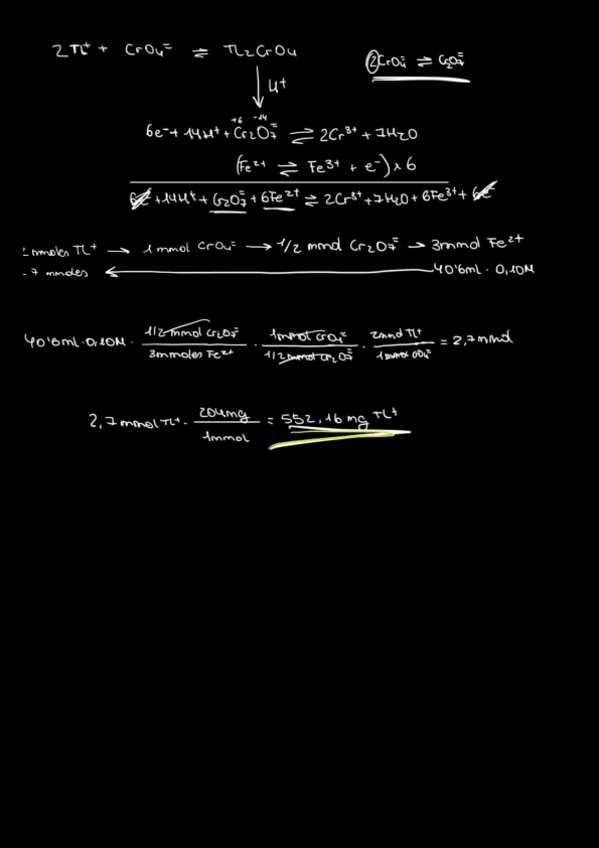 2Tl⁺ + CrO₄⁼ ⇌ Tl₂CrO₄
②CrO₄⁼ ⇌ Cr₂O₇⁼
↓ H⁺
+6 -14
6e⁻ + 14H⁺ + Cr₂O₇⁼ ⇌ 2Cr³⁺ + 7H₂O
(Fe²⁺ ⇌ Fe³⁺ + e⁻) x 6
6e⁻ + 14H⁺ + Cr₂O₇⁼ + 6Fe²⁺ ⇌ 2Cr³⁺ + 7H₂O + 6Fe³⁺ + 6e⁻
mmoles Tl⁺ → 1 mmol CrO₄⁼ → 1/2 mmol Cr₂O₇⁼ → 3mmol Fe²⁺
7 mmoles ← 40'6ml · 0,10M
40'6ml · 0,10M · 1/2 mmol Cr₂O₇⁼ / 3mmoles Fe²⁺ · 1mmol CrO₄⁼ / 1/2 mmol Cr₂O₇⁼ · 2mmol Tl⁺ / 1mmol CrO₄⁼ = 2,7mmol
2,7mmol Tl⁺ · 204mg / 1mmol = 552,16 mg Tl⁺